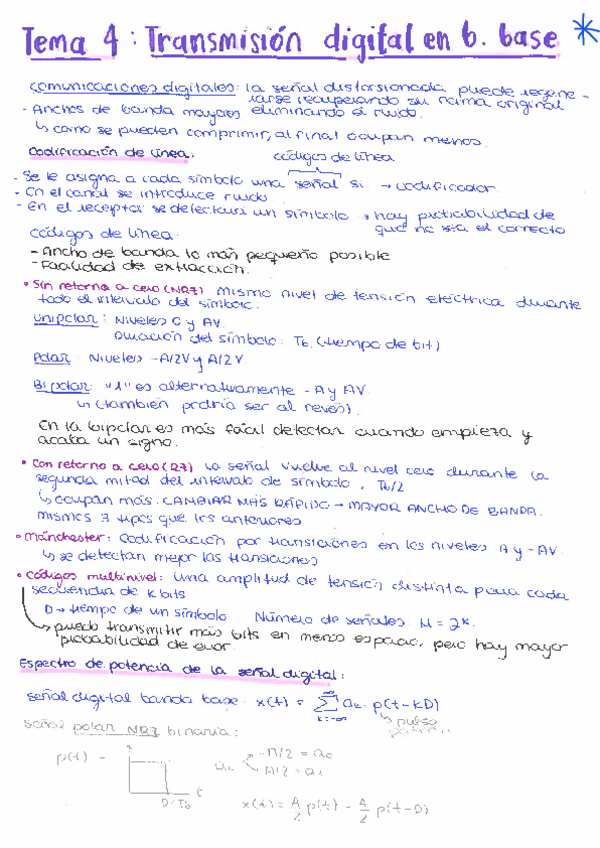 Tema 4: Transmisión digital en b. base
comunicaciones digitales: la señal distorsionada puede regene-
rarse recuperando su forma original
- Anchos de banda mayores eliminando el ruido.
↳ como se pueden comprimir, al final ocupan menos.
Codificación de línea: códigos de línea
- Se le asigna a cada símbolo una señal si → codificador
- En el canal se introduce ruido
- En el receptor se detectará un símbolo → hay probabilidad de
que no sea el correcto
Códigos de línea:
- Ancho de banda lo más pequeño posible
- Facilidad de extracción.
• Sin retorno a cero (NRZ) mismo nivel de tensión eléctrica durante
todo el intervalo del símbolo.
Unipolar: Niveles 0 y AV.
Duración del símbolo: Tb. (tiempo de bit)
Polar: Niveles -A/2V y A/2V.
Bipolar: "1" es alternativamente -A y AV.
↳ (también podría ser al revés).
En la bipolar es más fácil detectar cuando empieza y
acaba un signo.
• Con retorno a cero (RZ) La señal vuelve al nivel cero durante la
segunda mitad del intervalo de símbolo, Tb/2
↳ ocupan más. CAMBIAR MÁS RÁPIDO → MAYOR ANCHO DE BANDA.
mismos 3 tipos que los anteriores
• Mánchester: Codificación por transiciones en los niveles A y -AV.
↳ se detectan mejor las transiciones
• Códigos multinivel: Una amplitud de tensión distinta para cada
secuencia de k bits
D → tiempo de un símbolo Número de señales M = 2ᵏ.
↳ puedo transmitir más bits en menos espacio, pero hay mayor
probabilidad de error.
Espectro de potencia de la señal digital:
señal digital banda base: x(t) = ∑ aₖ p(t-kD)
k=-∞ ∞
↳ pulso
Señal polar NRZ binaria:
p(t) - D=Tb t
aₖ -A/2 = a₀
A/2 = a₁
x(t) = A/2 p(t) - A/2 p(t-D)